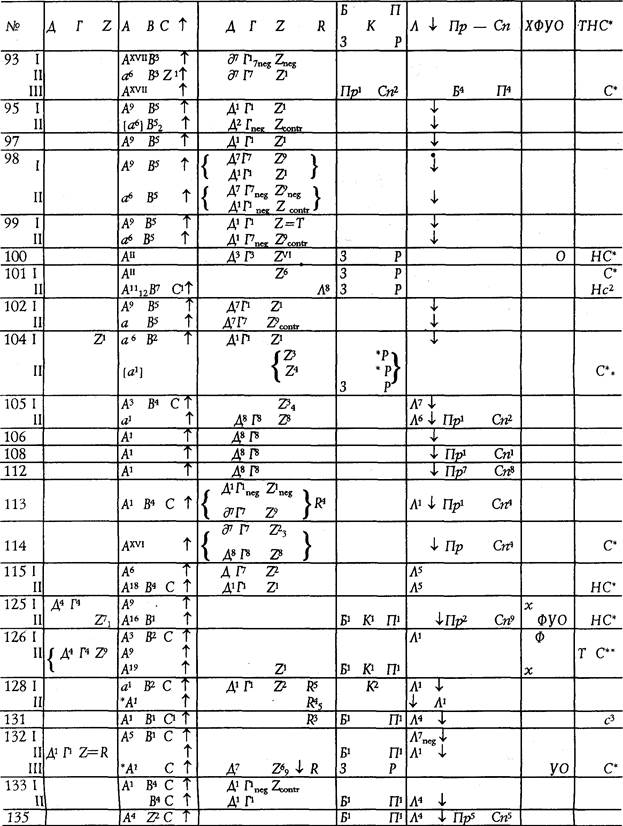 № Д Г Z A B C ↑ Д Г Z R Б П Λ ↓ Пр — Сп ХФУО ТНС*
К
З Р
93 I A^XVII B³ ↑ ∂⁷ Г¹₇neg Z_neg
II a⁶ B³ Z¹ ↑ ∂⁷ Г⁷ Z¹
III A^XVII ↑ Пр¹ Сп² Б⁴ П⁴ С*
95 I A⁹ B⁵ ↑ Д¹ Г¹ Z¹ ↓
II [a⁶] B⁵₂ ↑ Д² Г_neg Z_contr ↓
97 A⁹ B⁵ ↑ Д¹ Г¹ Z¹ ↓
98 I A⁹ B⁵ ↑ { Д⁷ Г⁷ Z⁹ } ↓
Д¹ Г¹ Z¹
II a⁶ B⁵ ↑ { Д⁷ Г⁷_neg Z⁹_neg } ↓
Д¹ Г¹_neg Z_contr
99 I A⁹ B⁵ ↑ Д¹ Г¹ Z=T ↓
II a⁶ B⁵ ↑ Д¹ Г⁷_neg Z⁹_contr ↓
100 A^II ↑ Д³ Г³ Z^VI З Р О НС*
101 I A^II ↑ Z⁶ З Р С*
II A¹¹₁₂ B⁷ C¹ ↑ Λ⁸ З Р Нс²
102 I A⁹ B⁵ ↑ Д⁷ Г¹ Z¹ ↓
II a B⁵ ↑ Д⁷ Г⁷ Z⁹_contr ↓
104 I Z¹ a⁶ B² ↑ Д¹ Г¹ Z¹ ↓
II [a¹] { Z³ *Р } С*⁎
Z⁴ *Р
З Р
105 I A³ B⁴ C ↑ Z³₄ Λ⁷ ↓
II a¹ ↑ Д⁸ Г⁸ Z⁸ Λ⁶ ↓ Пр¹ Сп²
106 A¹ ↑ Д⁸ Г⁸ ↓
108 A¹ ↑ Д⁸ Г⁸ ↓ Пр¹ Сп¹
112 A¹ ↑ Д⁸ Г⁸ ↓ Пр⁷ Сп⁸
113 A¹ B⁴ C ↑ { Д¹ Г¹_neg Z¹_neg } R⁴ Λ¹ ↓ Пр¹ Сп⁴
∂⁷ Г⁷ Z⁹
114 A^XVI ↑ { ∂⁷ Г⁷ Z²₃ } ↓ Пр Сп⁴ С*
Д⁸ Г⁸ Z⁸
115 I A⁶ ↑ Д Г⁷ Z² Λ⁵
II A¹⁸ B⁴ C ↑ Д¹ Г¹ Z¹ Λ⁵ НС*
125 I Д⁴ Г⁴ A⁹ ↑ х
II Z⁷₁ A¹⁶ B¹ ↑ Б¹ К¹ П¹ ↓ Пр² Сп⁹ ФУО НС*
126 I A³ B² C ↑ Λ¹ Ф
II { Д⁴ Г⁴ Z⁹ A⁹ ↑ Т С**
A¹⁹ ↑ Z¹ Б¹ К¹ П¹ х
128 I a¹ B² C ↑ Д¹ Г¹ Z² R⁵ К² Λ¹ ↓
II *A¹ ↑ R⁴₅ ↓ Λ¹
131 A¹ B¹ C¹ ↑ R³ Б¹ П¹ Λ⁴ ↓ с³
132 I A⁵ B¹ C ↑ Λ⁷_neg ↓
II Д¹ Г¹ Z=R ↑ Б¹ П¹ Λ¹ ↓
III *A¹ C ↑ Д⁷ Z⁶₉ ↓ R З Р УО С*
133 I A¹ B⁴ C ↑ Д¹ Г¹_neg Z_contr
II B⁴ C ↑ Д¹ Г¹ Б¹ П¹ Λ⁴ ↓
135 A⁴ Z² C ↑ Б¹ П¹ Λ⁴ ↓ Пр⁵ Сп⁵